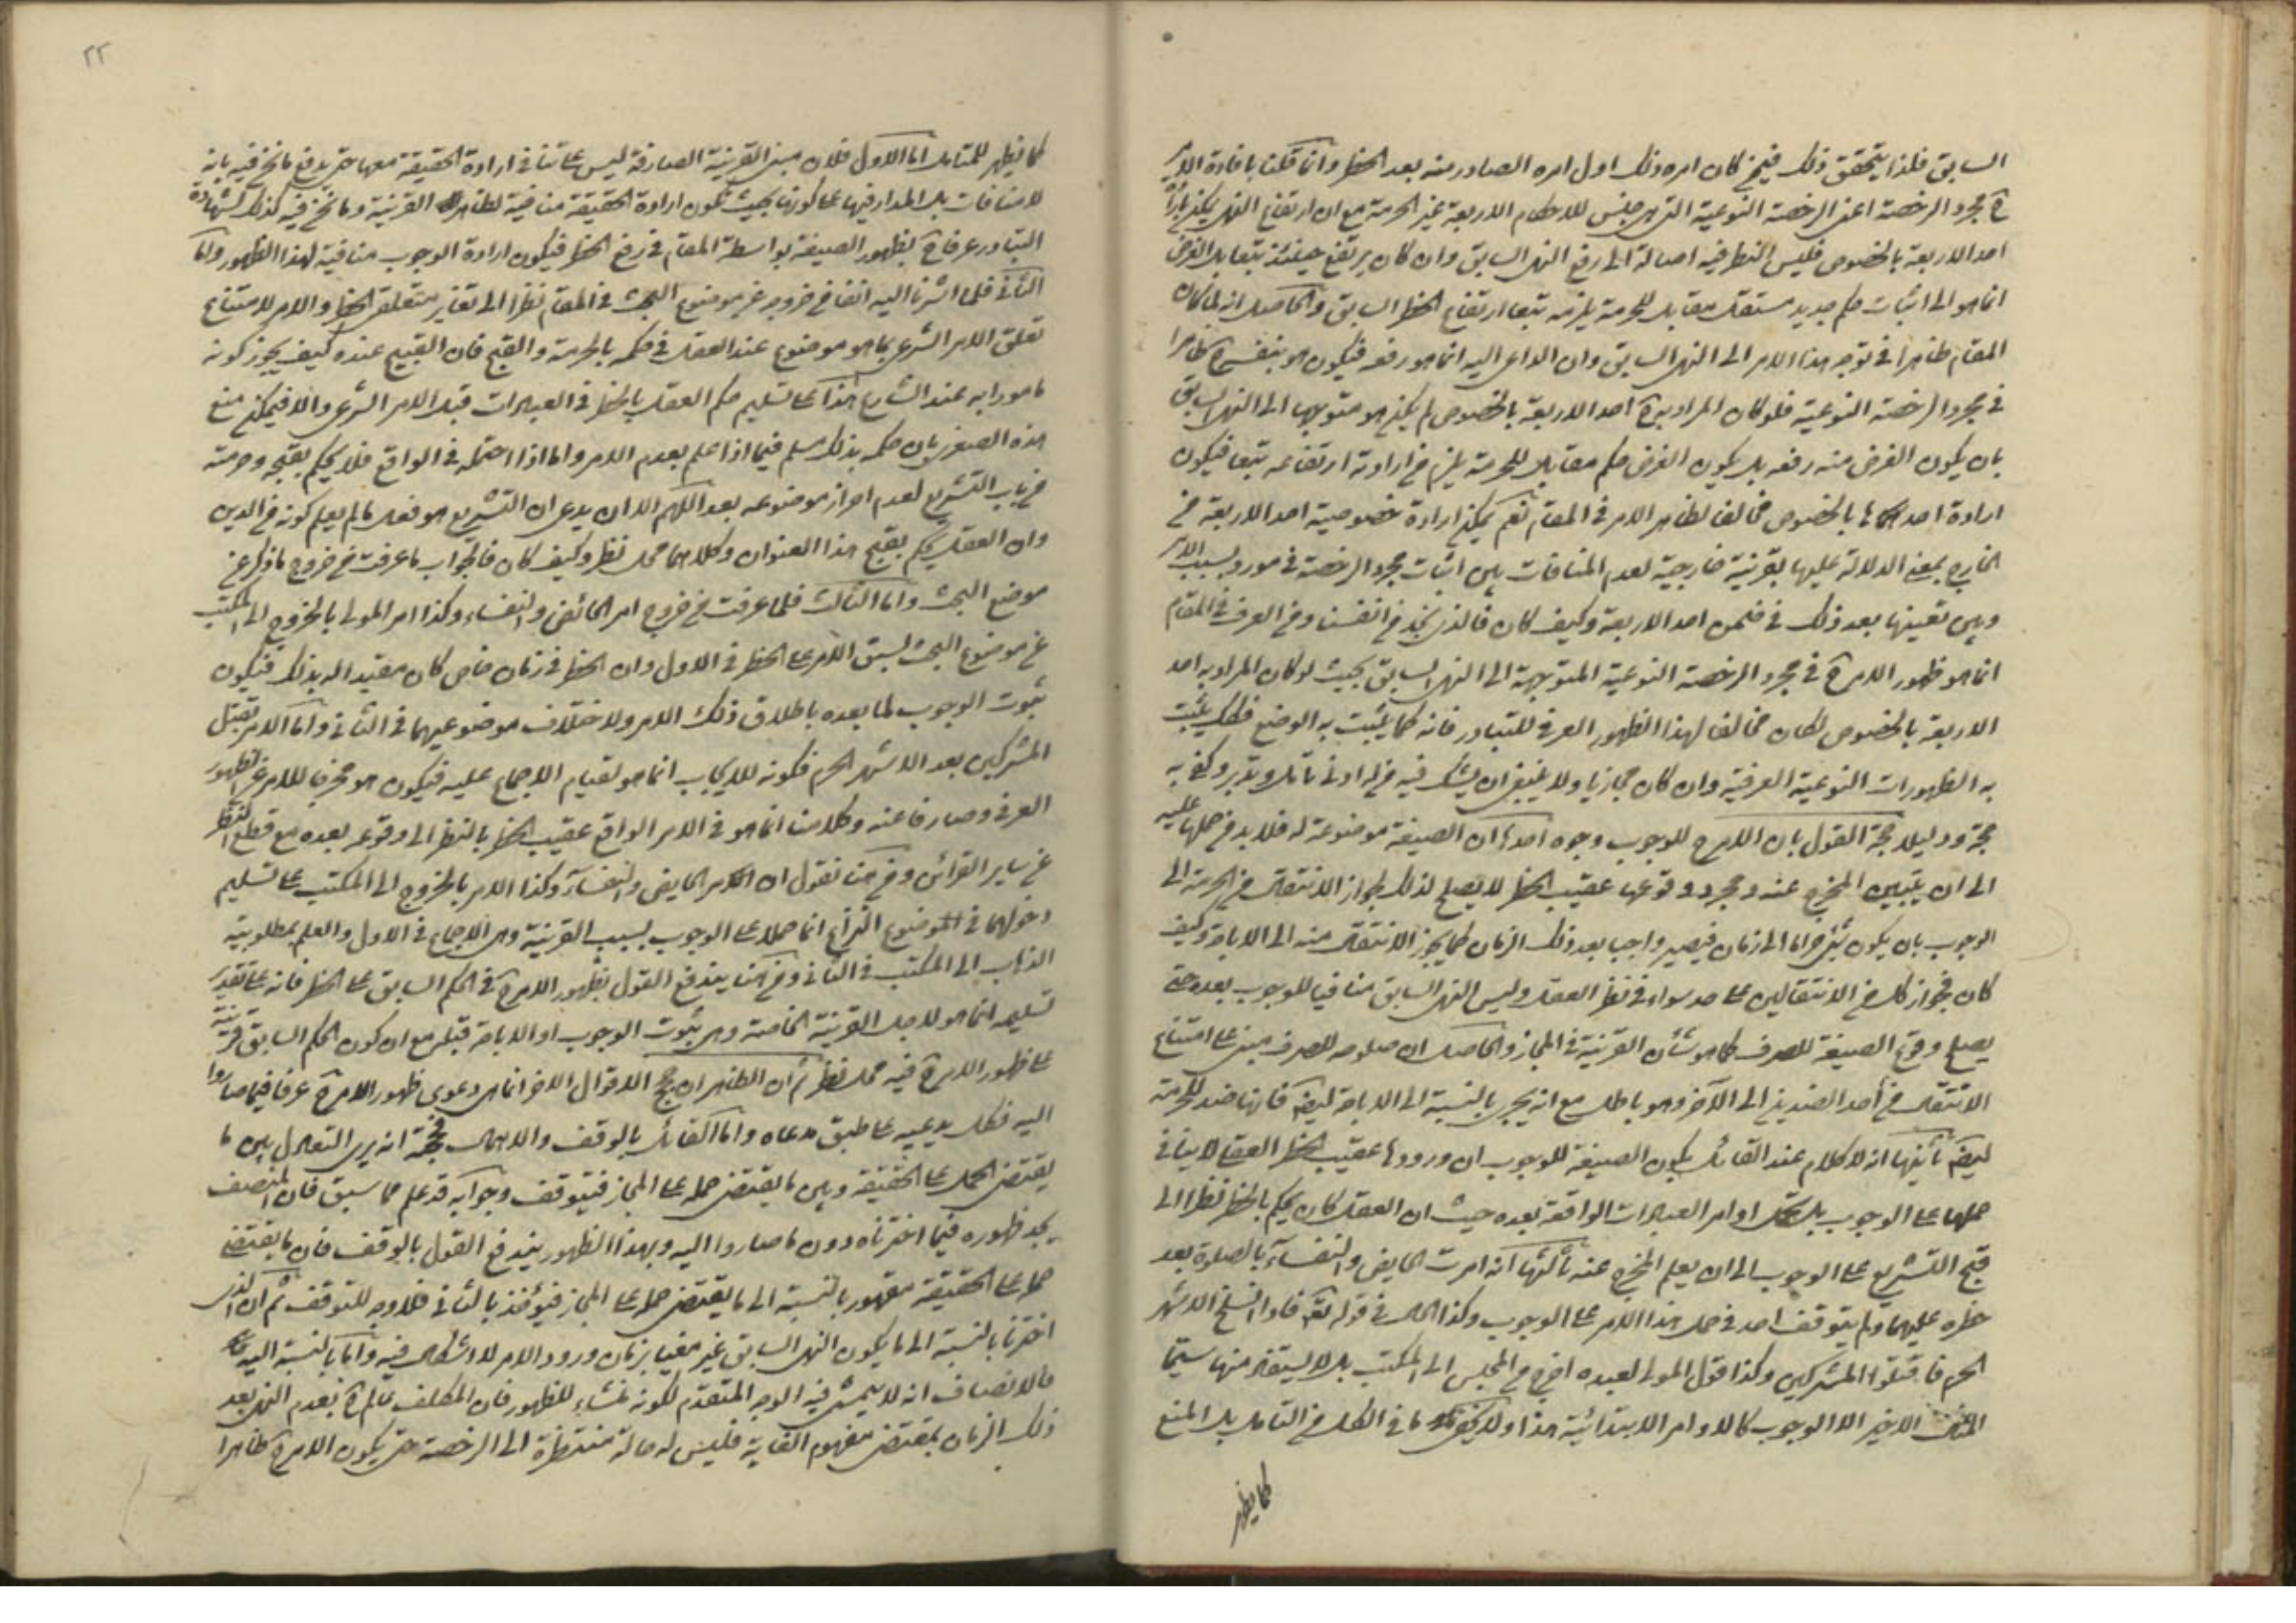 السابق فلذا يتحقق ذلك فيمن كان امره ذلك اول امره الصادر منه بعد الحظر وانما قلنا بافادة الامر
ح مجرد الرخصة اعنى الرخصة النوعية التى هى جنس للاحكام الاربعة غير الحرمة مع ان ارتفاع النهى يمكن بارادة
احد الاربعة بالخصوص فليس النظر فيه اصالة الى رفع النهى السابق وان كان يرتفع حينئذ تبعا بل الغرض
انما هو الى اثبات حكم جديد مستقل مقابل للحرمة يلزمه تبعا ارتفاع الحظر السابق والحاصل انه لما كان
المقام ظاهرا فى توجه هذا الامر الى النهى السابق وان الداعى اليه انما هو رفعه فيكون هو بنفسه ح ظاهرا
فى مجرد الرخصة النوعية فلو كان المراد به ح احد الاربعة بالخصوص لم يكن هو متوجها الى النهى السابق
بان يكون الغرض منه رفعه بل يكون الغرض حكم مقابل للحرمة يلزم من ارادته ارتفاعه تبعا فيكون
ارادة احدها بالخصوص مخالفا لظاهر الامر فى المقام نعم يمكن ارادة خصوصية احد الاربعة من
الخارج بمعنى الدلالة عليها بقرينة خارجية لعدم المنافات بين اثبات مجرد الرخصة فى مورد بسبب الامر
وبين تعيينها بعد ذلك فى ضمن احد الاربعة وكيف كان فالذى نجد من انفسنا ومن العرف فى المقام
انما هو ظهور الامر ح فى مجرد الرخصة النوعية المتوجهة الى النهى السابق بحيث لو كان المراد به احد
الاربعة بالخصوص لكان مخالفا لهذا الظهور العرفى للتبادر فانه كما يثبت به الوضع فكذلك يثبت
به الظهورات النوعية العرفية وان كان مجازيا ولا ينبغى ان يشك فيه من له ادنى تأمل وتدبر وكفى به
حجة ودليلا حجة القول بان الامر ح للوجوب وجوه احدها ان الصيغة موضوعة له فلا بد من حملها عليه
الى ان يتبين المخرج عنه ومجرد وقوعها عقيب الحظر لا يصلح لذلك لجواز الانتقال من الحرمة الى
الوجوب بان يكون شئ حراما الى زمان فيصير واجبا بعد ذلك الزمان كما يجوز الانتقال منه الى الاباحة وكيف
كان فجواز كل من الانتقالين على حد سواء فى نظر العقل وليس النهى السابق منافيا للوجوب بعده حتى
يصلح وقوع الصيغة للصرف كما هو شأن القرينة فى المجاز والحاصل ان صلوحه للصرف مبنى على امتناع
الانتقال من أحد الضدين الى الآخر وهو باطل مع انه يجرى بالنسبة الى الاباحة ايضا فانها ضد للحرمة
ايضا ثانيها انه لا كلام عند القائل بكون الصيغة للوجوب ان ورودها عقيب الحظر العقلى لا ينافى
حملها على الوجوب بل تحمل اوامر العبادات الواقعة بعده حيث ان العقل كان يحكم بالحظر نظرا الى
قبح التشريع على الوجوب الى ان يعلم المخرج عنه ثالثها انه امرت الحايض والنفساء بالصلوة بعد
حظره عليهما ولم يتوقف احد فى حمل هذا الامر على الوجوب وكذا الحال فى قوله تعالى فاذا انسلخ الاشهر
الحرم فاقتلوا المشركين وكذا قول المولى لعبده اخرج من المجلس الى المكتب بل لا يستفاد منها سيما
الاخير الا الوجوب كالاوامر الابتدائية هذا ولا يخفى ما فى الكل من التأمل بل المنع
كما يظهر

٢٢
كما يظهر للمتأمل اما الاول فلان مبنى القرينة الصارفة ليس على تنافى ارادة الحقيقة معها حتى يدفع ما نحن فيه بانه
لا منافات بل المدار فيها على كونها بحيث تكون ارادة الحقيقة منافية لظاهر القرينة وما نحن فيه كذلك لشهادة
التبادر عرفا ح بظهور الصيغة بواسطة المقام فى رفع الحظر فيكون ارادة الوجوب منافية لهذا الظهور واما
الثانى فلما اشرنا اليه انفا من خروجه عن موضوع البحث فى المقام نظرا الى تغاير متعلقى الحظر والامر لامتناع
تعلق الامر الشرعى بما هو موضوع عند العقل فى حكمه بالحرمة والقبح فان القبيح عنده كيف يجوز كونه
مامورا به عند الشارع هذا على تسليم حكم العقل بالحظر فى العبادات قبل الامر الشرعى والا فيمكن منع
هذه الصغرى بان حكمه بذلك مسلم فيما اذا علم بعدم الامر واما اذا احتمله فى الواقع فلا يحكم بقبحه وحرمته
من باب التشريع لعدم احراز موضوعه بعد اللهم الا ان يدعى ان التشريع هو فعل ما لم يعلم كونه من الدين
وان العقل يحكم بقبح هذا العنوان وكلاهما محل نظر وكيف كان فالجواب ما عرفت من خروج ما ذكر عن
موضع البحث واما الثالث فلما عرفت من خروج امر الحائض والنفساء وكذا امر المولى بالخروج الى المكتب
عن موضوع البحث لسبق الامر على الحظر فى الاول وان الحظر فى زمان خاص كان مقيدا له بذلك فيكون
ثبوت الوجوب لما بعده باطلاق ذلك الامر ولاختلاف موضوعيهما فى الثانى واما الامر بقتل
المشركين بعد الاشهر الحرم فكونه للايجاب انما هو لقيام الاجماع عليه فيكون هو مخرجا للامر عن الظهور
العرفى وصارفا عنه وكلامنا انما هو فى الامر الواقع عقيب الحظر بالنظر الى وقوعه بعده مع قطع النظر
عن ساير القرائن ومن هنا نقول ان امر الحايض والنفساء وكذا الامر بالخروج الى المكتب على تسليم
دخولهما فى موضوع النزاع انما حملا على الوجوب بسبب القرينة وهى الاجماع فى الاول والعلم بمطلوبية
الذهاب الى المكتب فى الثانى ومن هنا يندفع القول بظهور الامر ح فى الحكم السابق على الحظر فانه على تقدير
تسليمه انما هو لاجل القرينة الخاصة وهى ثبوت الوجوب او الاباحة قبل مع ان كون الحكم السابق قرينة
على ظهور الامر ح فيه محل نظر ثم ان الظاهر ان حجج الاقوال الاخر انما هى دعوى ظهور الامر ح عرفا فيما صاروا
اليه فكل يدعيه على طبق مدعاه واما القائل بالوقف والاجمال فحجته انه يرى التعادل بين ما
يقتضى الحمل على الحقيقة وبين ما يقتضى حمله على المجاز فيتوقف وجوابه قد علم مما سبق فان المنصف
يجد ظهوره فيما اخترناه دون ما صاروا اليه وبهذا الظهور يندفع القول بالوقف فان ما يقتضى
حمله على الحقيقة مقهور بالنسبة الى ما يقتضى حمله على المجاز فيؤخذ بالثانى فلا وجه للتوقف ثم ان الذى
اخترنا بالنسبة الى ما يكون النهى السابق غير مغيا بزمان ورود الامر لا اشكال فيه واما بالنسبة اليه
فالانصاف انه لا يتمشى فيه الوجه المتقدم لكونه منشاء للظهور فان المكلف عالم ح بعدم النهى بعد
ذلك الزمان بمقتضى مفهوم الغاية فليس له حالة منتظرة الى الرخصة حتى يكون الامر ح ظاهرا